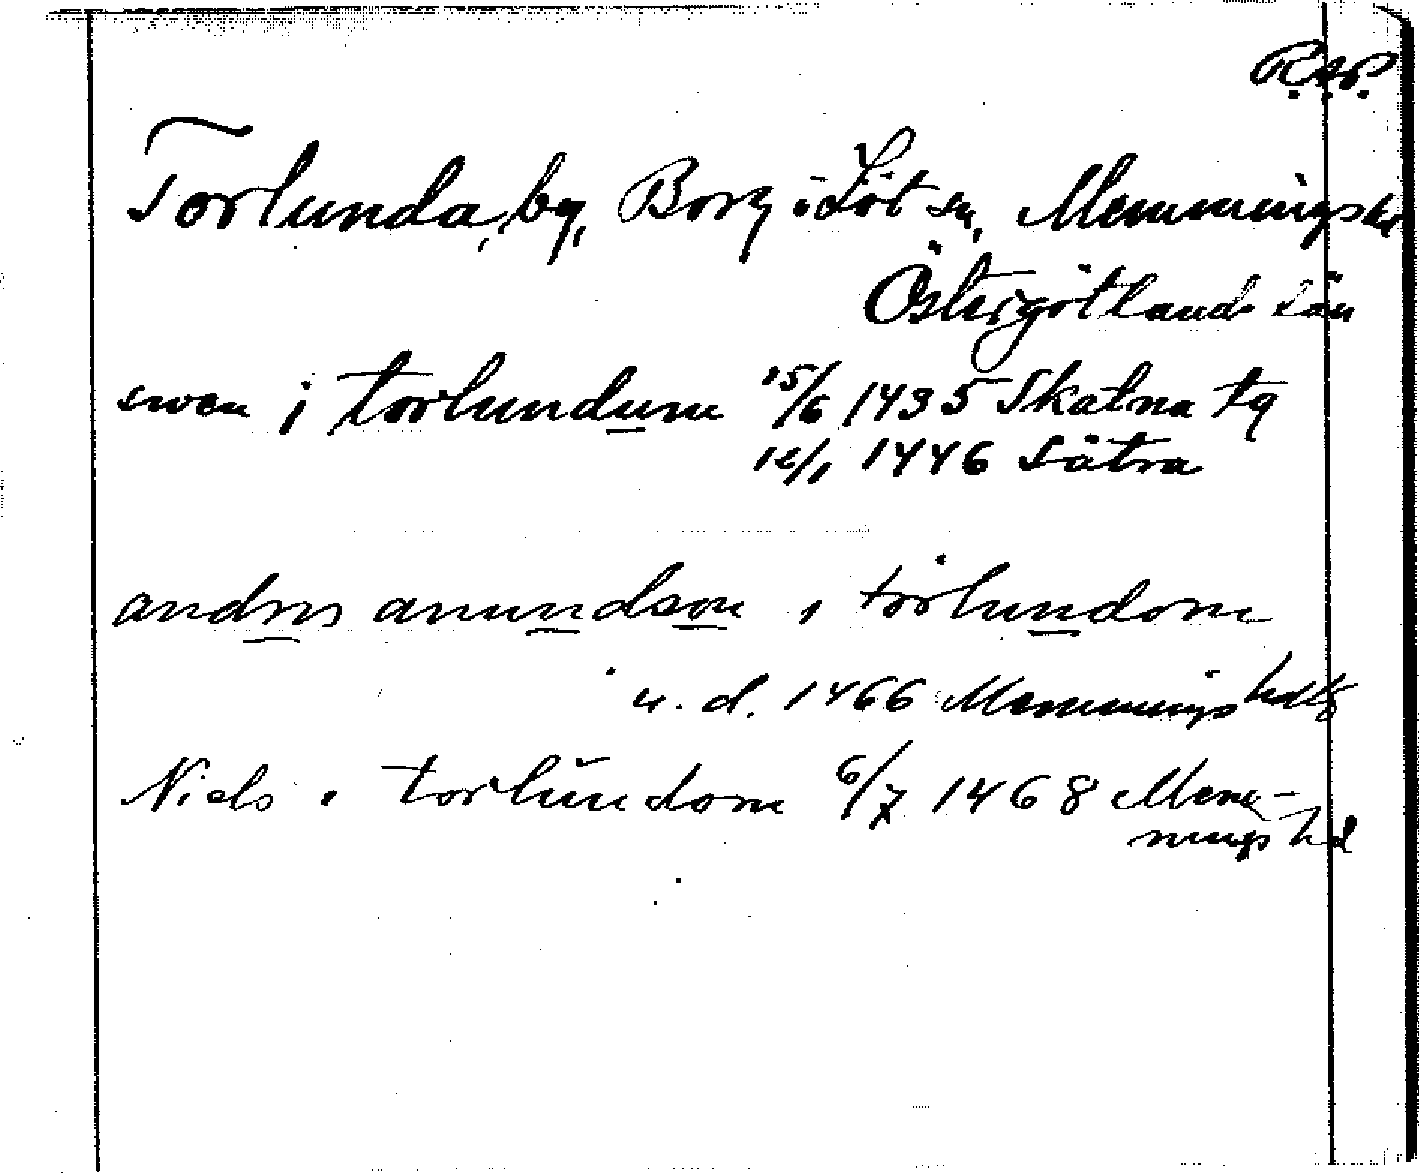 R.A.P.
Torlunda, by, Borg i Löt sn, Memmings hd
Östergötlands län
swen i torlundum 15/6 1435 Skatna tg
12/1 1446 Sätra
andrss anundson i torlundom
u. d. 1466 Memmings hdtg
Niels i torlundom 6/7 1468 Mem-
mings hd